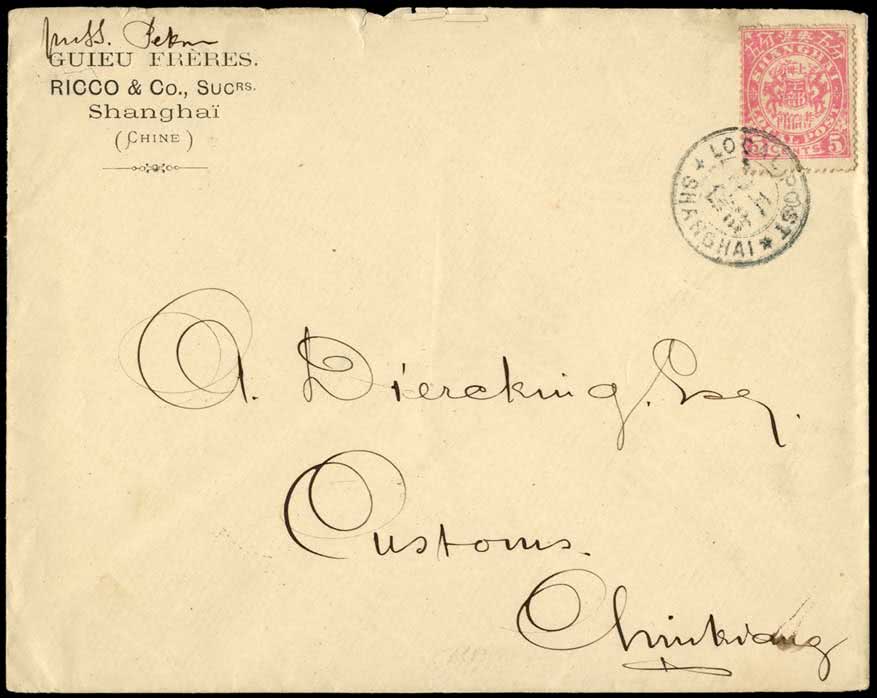 per S.S. Pekin
GUIEU FRÈRES.
RICCO & Co., SUCRS.
Shanghaï
(CHINE)
SHANGHAI
LOCAL POST
5 CENTS 5
LOCAL POST
SHANGHAI
A. Diercking, Esq.
Customs.
Chinkiang